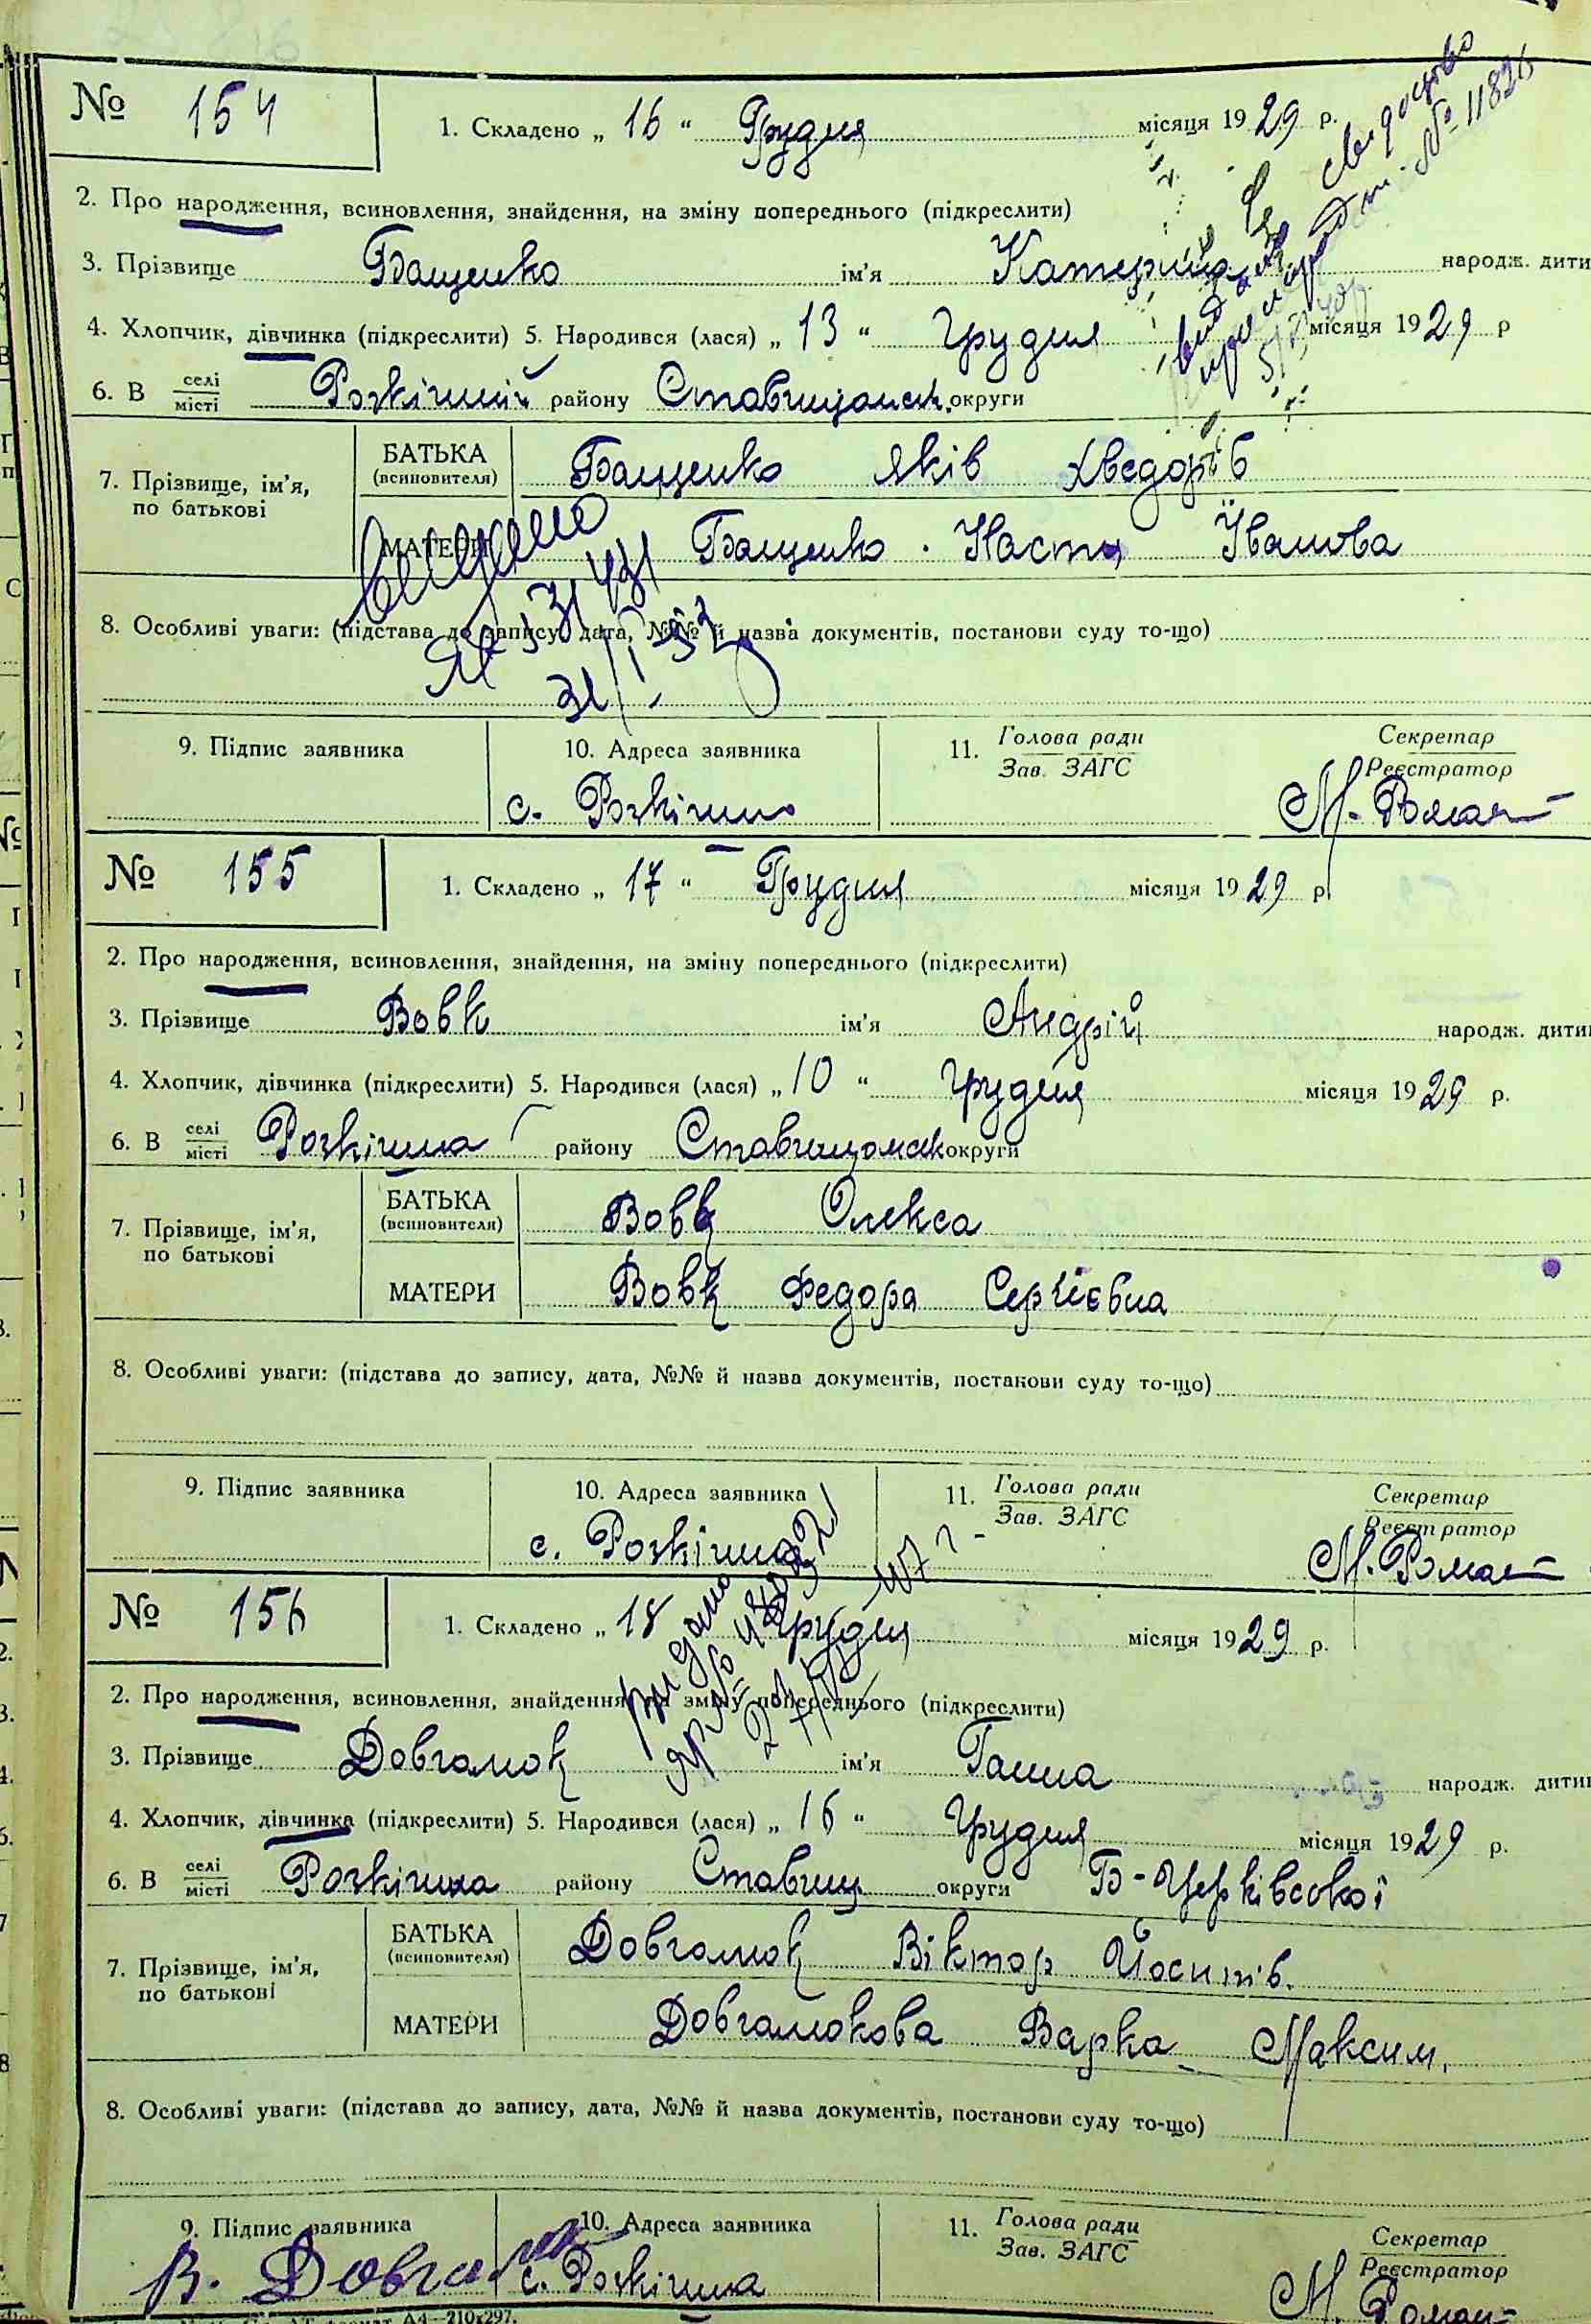 № 154
1. Складено „ 16 “ Грудня місяця 1929 р.
2. Про народження, всиновлення, знайдення, на зміну попереднього (підкреслити)
3. Прізвище Бащенко ім’я Катерина народж. дити
4. Хлопчик, дівчинка (підкреслити) 5. Народився (лася) „ 13 “ Грудня місяця 1929 р
6. В селі місті Розкішній району Ставищанськ. округи
7. Прізвище, ім’я, по батькові
БАТЬКА (всиновителя) Бащенко Яків Хведорів
МАТЕРИ Бащенко Настя Іванова
8. Особливі уваги: (підстава до запису, дата, №№ й назва документів, постанови суду то-що)
9. Підпис заявника
10. Адреса заявника
с. Розкішно
11. Голова ради
Зав. ЗАГС
Секретар
Реєстратор
свидоцтво
№ 11826
№ 155
1. Складено „ 17 “ Грудня місяця 1929 р
2. Про народження, всиновлення, знайдення, на зміну попереднього (підкреслити)
3. Прізвище Вовк ім’я Андрій народж. дити
4. Хлопчик, дівчинка (підкреслити) 5. Народився (лася) „ 10 “ Грудня місяця 1929 р.
6. В селі місті Розкішна району Ставищанськ округи
7. Прізвище, ім’я, по батькові
БАТЬКА (всиновителя) Вовк Олекса
МАТЕРИ Вовк Федора Сергієвна
8. Особливі уваги: (підстава до запису, дата, №№ й назва документів, постанови суду то-що)
9. Підпис заявника
10. Адреса заявника
с. Розкішна
11. Голова ради
Зав. ЗАГС
Секретар
Реєстратор
№ 156
1. Складено „ 18 Грудня місяця 1929 р.
2. Про народження, всиновлення, знайдення, на зміну попереднього (підкреслити)
3. Прізвище Довганюк ім’я Ганна народж. дити
4. Хлопчик, дівчинка (підкреслити) 5. Народився (лася) „ 16 “ Грудня місяця 1929 р.
6. В селі місті Розкішна району Ставищ округи Б-Церківської
7. Прізвище, ім’я, по батькові
БАТЬКА (всиновителя) Довганюк Віктор Йосипів.
МАТЕРИ Довганюкова Варка Максим.
8. Особливі уваги: (підстава до запису, дата, №№ й назва документів, постанови суду то-що)
9. Підпис заявника
10. Адреса заявника
с. Розкішна
11. Голова ради
Зав. ЗАГС
Секретар
Реєстратор
А4—210х297.